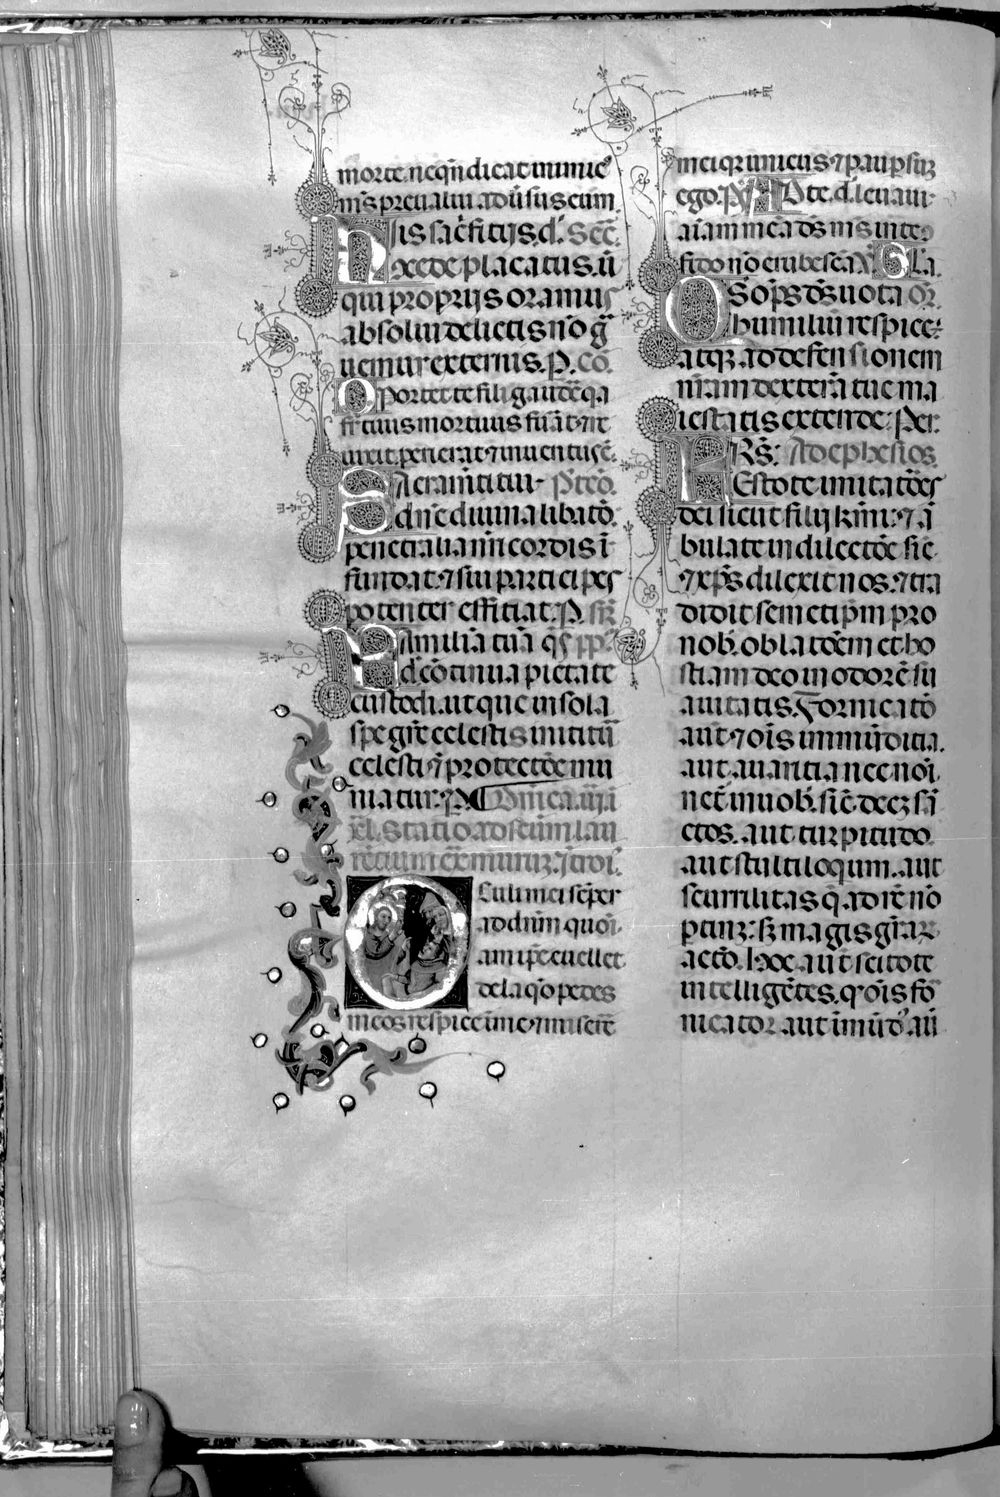 morte. neqn̄ dicat inimic᷒
m̄s preualui adūsus eum.
His sac̄ficijs. d̄. Sec̄.
q̄s. c̄cede placatus. ū
qui proprijs oramus
absolui delictis nō g̃
uemur externis. P. Cō.
Oportet te fili gaude q̄a
fr̄ tuus mortuus fūat ⁊ re
uixit. perierat ⁊ inuentus ē.
Sacram̄ti tui. P̄t cō.
q̄s dn̄e diuina libatō.
penetralia nr̄i cordis ī
fundat. ⁊ sui participes
potenter efficiat. P. sr̄.
Familiā tuā q̄s pp̄.
d̄. cōtinua pietate
custodi. ut que in sola
spe gr̄e celestis inititū
celesti ⁊ protectōe mu
niatur. P. Dn̄ica. iij. ī
xl. Statio ad scūm lau
rētium ex̄ muruꝫ. Ītroi.
Oculi mei sēper
ad dnm̄ quoī
am ip̄e euellet
de laq̄o pedes
meos respice ī me ⁊ miserē
mei qꝛ unicus ⁊ paup̄ suꝫ
ego. P̄s. Ad te. d̄. leuaui
aīam meā ds̄ ms̄ in te
fido nō erubescā. V̄. Gla.
QS om̄ps ds̄ uota Or̄.
humiliū respice:
atqꝫ ad defensionem
nr̄am dexterā tue ma
iestatis extende: Per.
FRS: Ad ephesios.
Estote imitatōes
dei sicut filij kmi: ⁊ ā
bulate in dilectōe sic̄
⁊ xp̄s dilexit nos. ⁊ tra
didit semetip̄m pro
nob̄. oblatōem et ho
stiam deo in odorē su
auitatis. Fornicatō
aūt ⁊ oīs immūditia.
aut auaritia nec noī
net̄ in uob̄. sic̄ decꝫ sā
ctos. aut turpitudo.
aut stultiloquium. aut
scurrilitas q̄ ad rē nō
ptinꝫ: sꝫ magis gr̄aꝝ
actō. hoc aūt scitote
intelligētes. qꝰ oīs for
nicator. aut īmūdꝰ. aū